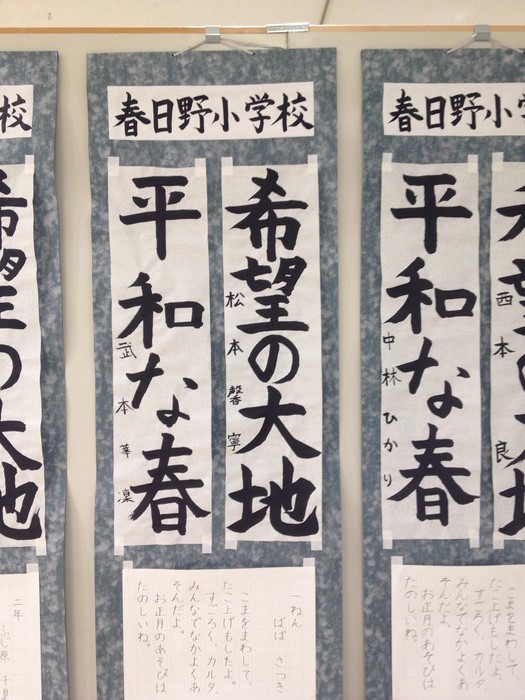 校
希望の大地
二年
春日野小学校
希望の大地
松本馨寧
平和な春
武本華凜
一ねん
ばば さつき
こまをまわして、
たこ上げもしたよ。
すごろく、カルタ、
みんなでなかよくあ
そんだよ。
お正月のあそびは
たのしいね。
春日野小
西本
良
平和な春
中林ひかり
こまをまわして
たこ上げもしたよ。
すごろく、カルタ、
みんなでなかよくあ
そんだよ。
お正月のあそびは
たのしいね。